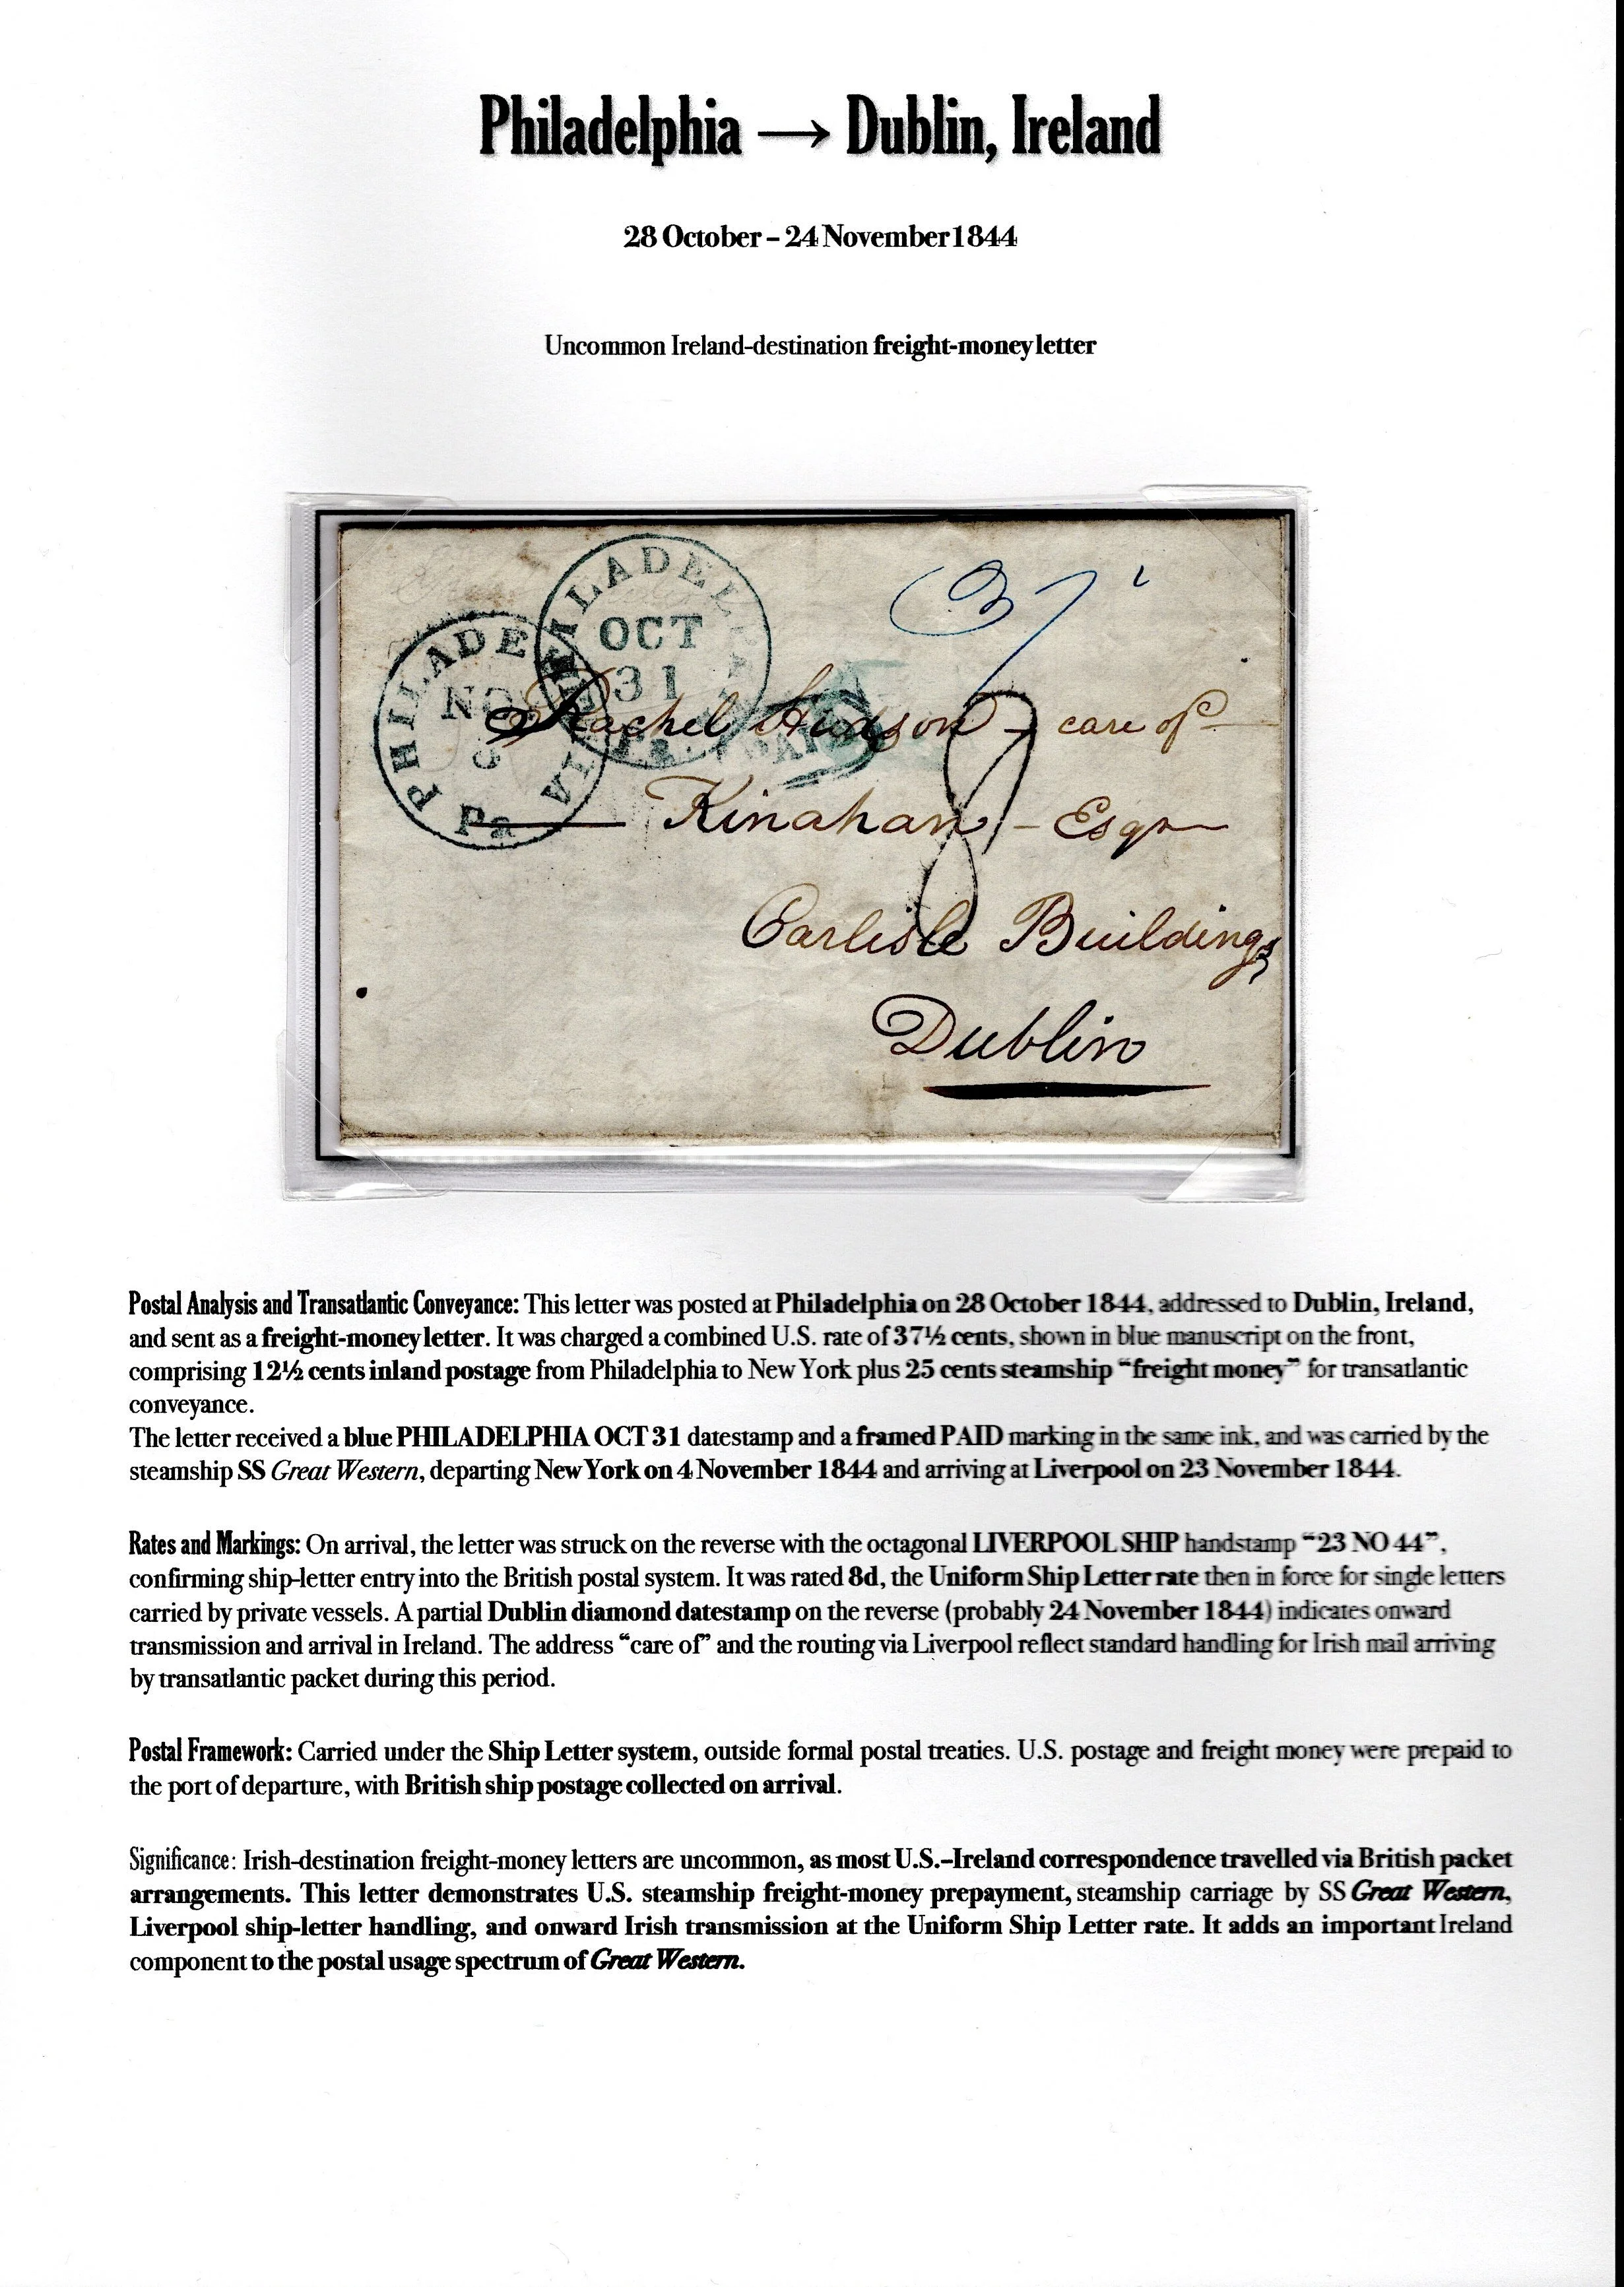 Philadelphia → Dublin, Ireland
28 October – 24 November 1844
Uncommon Ireland-destination freight-money letter
PHILADELPHIA
OCT
31
Pa.
PHILADELPHIA
NOV
Pa
PAID
37
8
Rachel Hudson – care of
Kinahan – Esqr
Carlisle Buildings
Dublin
Postal Analysis and Transatlantic Conveyance: This letter was posted at Philadelphia on 28 October 1844, addressed to Dublin, Ireland,
and sent as a freight-money letter. It was charged a combined U.S. rate of 37½ cents, shown in blue manuscript on the front,
comprising 12½ cents inland postage from Philadelphia to New York plus 25 cents steamship “freight money” for transatlantic
conveyance.
The letter received a blue PHILADELPHIA OCT 31 datestamp and a framed PAID marking in the same ink, and was carried by the
steamship SS Great Western, departing New York on 4 November 1844 and arriving at Liverpool on 23 November 1844.
Rates and Markings: On arrival, the letter was struck on the reverse with the octagonal LIVERPOOL SHIP handstamp “23 NO 44”,
confirming ship-letter entry into the British postal system. It was rated 8d, the Uniform Ship Letter rate then in force for single letters
carried by private vessels. A partial Dublin diamond datestamp on the reverse (probably 24 November 1844) indicates onward
transmission and arrival in Ireland. The address “care of” and the routing via Liverpool reflect standard handling for Irish mail arriving
by transatlantic packet during this period.
Postal Framework: Carried under the Ship Letter system, outside formal postal treaties. U.S. postage and freight money were prepaid to
the port of departure, with British ship postage collected on arrival.
Significance: Irish-destination freight-money letters are uncommon, as most U.S.–Ireland correspondence travelled via British packet
arrangements. This letter demonstrates U.S. steamship freight-money prepayment, steamship carriage by SS Great Western,
Liverpool ship-letter handling, and onward Irish transmission at the Uniform Ship Letter rate. It adds an important Ireland
component to the postal usage spectrum of Great Western.